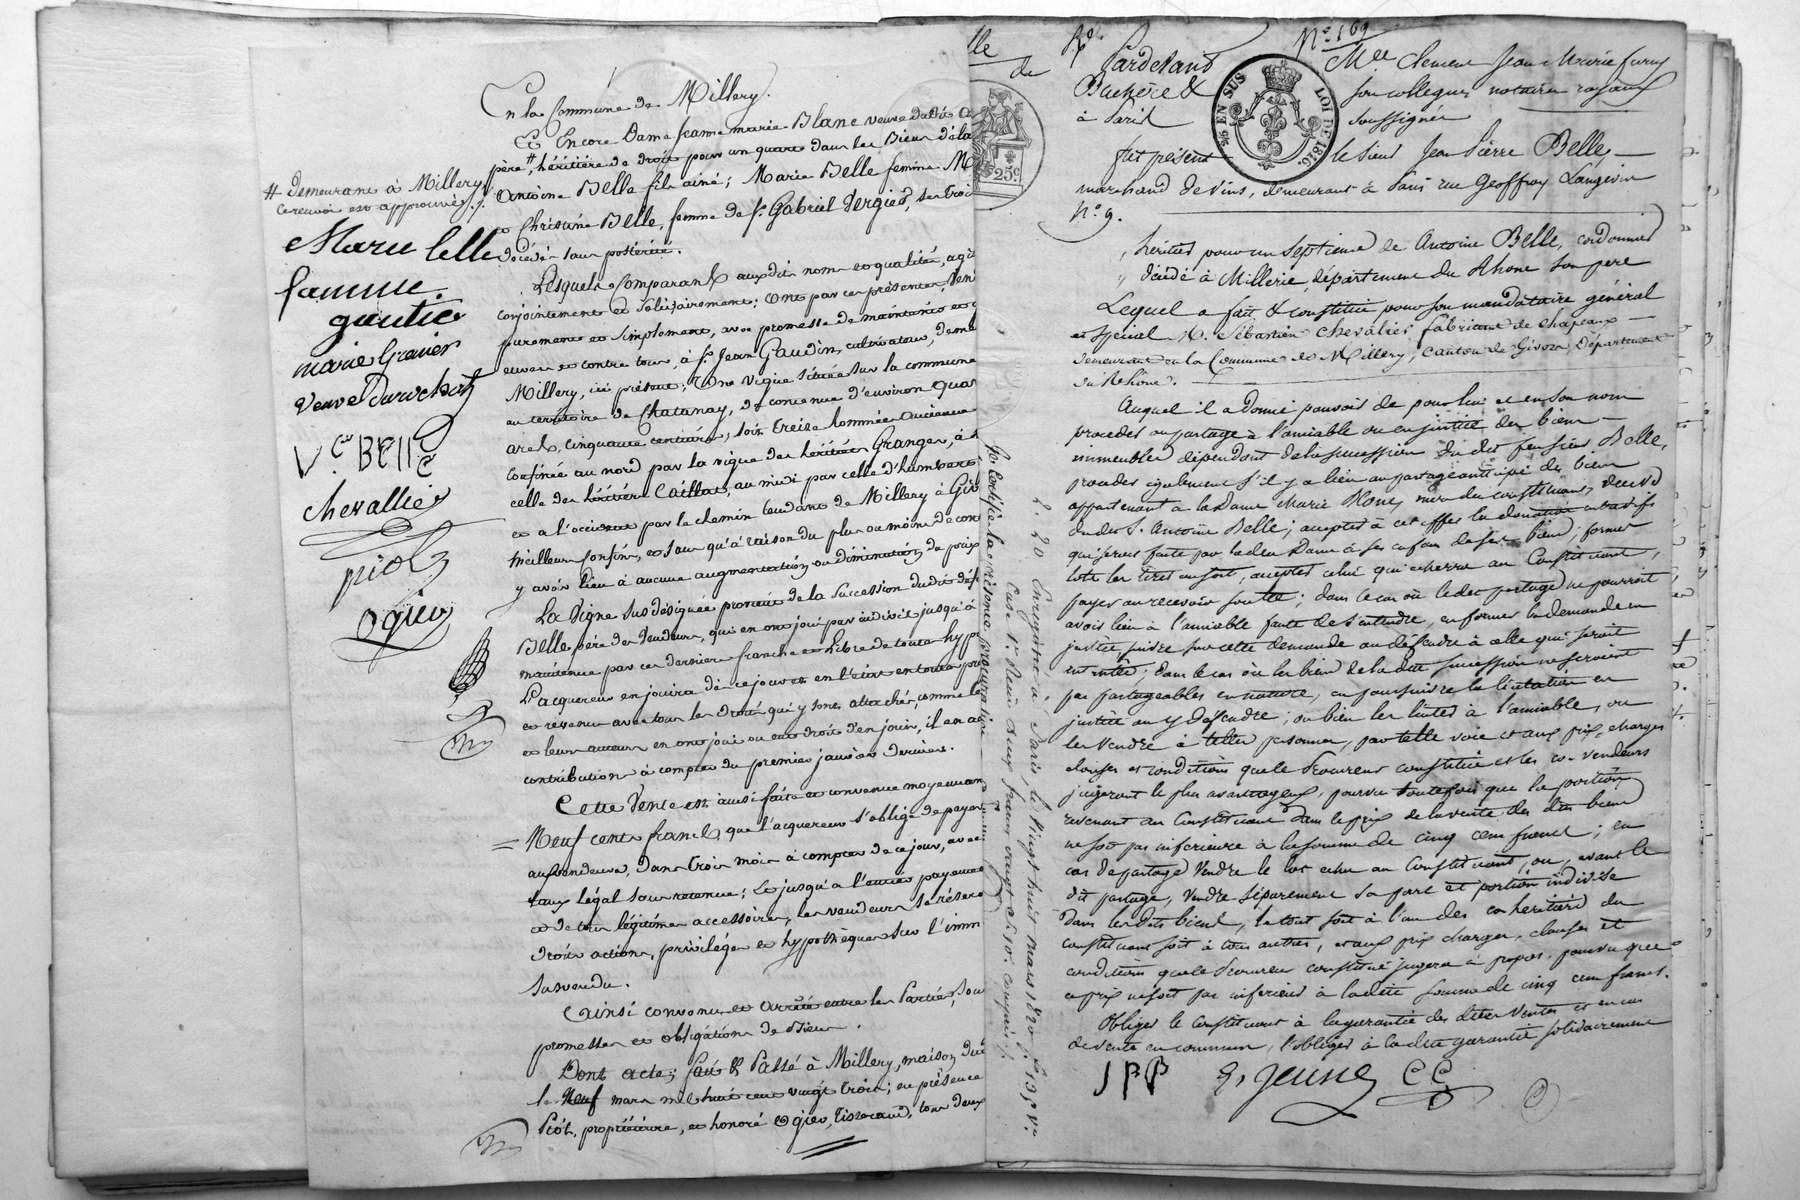 En la Commune de Millery.
Et Encore Dame Jeanne marie Blanc veuve dudit
père #, héritière de droit pour un quart dans les Biens de la
Antoine Belle fils ainé; Marie Belle femme
et Christine Belle, femme de Sr Gabriel Vergier, ses trois
décédé sans postérité.
Lesquels Comparants auxdits noms et qualités, agis
conjointement et solidairement; Ont par ces présentes, Vend
purement et simplement, avec promesse de maintenir et
envers et contre tous, à Sr Jean Gaudin, cultivateur, deme
Millery, ici présent; Une vigne située sur la commune
au territoire de Chatanay, de contenue d'environ quat
ares, cinquante centiares, soit treize hommées ancienne
confinée au nord par la vigne des héritiers Granger, à
celle des héritiers Caillat, au midi par celle d'humbert
et a l'occident par le chemin tendant de Millery à Giv
meilleurs confins, et sans qu'à raison du plus ou moins de con
y avoir lieu à aucune augmentation ou diminution de prix
La Vigne sus désignée provient de la succession dudit déf
Belle père des Vendeurs, qui en ont joui par indivis jusqu'à
maintenue par ces derniers franche et Libre de toute hyp
L'acquereur en jouira dès ce jour et en l'état en toute pr
et revenu avec tous les droits qui y sont attachés, comme le
et leurs auteurs en ont joui ou eu droit d'en jouir, il en ac
contribution à compter du premier janvier dernier.
Cette Vente est ainsi faite et convenue moyennant
Neuf cents francs, que l'acquereur s'oblige de payer
aux vendeurs, dans trois mois à compter de ce jour, avec
taux légal sans retenue; Et jusqu'a l'entier payement
et de tous légitimes accessoires, les vendeurs se réserve
droits actions, privilège et hypothèque sur l'imm
sus vendu.
Ainsi convenu et arrêté entre les Parties, sous
promesses et obligations de Biens.
Dont acte; fait & Passé à Millery, maison du
le Neuf mars mil huit cent vingt trois; en présence
Piot, propriétaire, et honoré Ogier, tisserand, tous deux
# Demeurant à Millery
ce renvoi est approuvé.
Marie belle
famme
gautier
marie Granier
veuve Durochat
Ve BEllE
Chevallier
piot
Ogier
Je Certifie la présente procuration
Enregistré à Paris, le Vingt huit mars 1820, f° 13, v°
Case 1re Reçu deux francs vingt c. 10e compris
lle
de
25c
Pardevant
No 169
Mtre Clement Jean Marie
Buchère &
son collegue, notaires royaux
à Paris
Soussignés
25 EN SUS
LOI DE 1816.
fut présent
le sieur Jean Pierre Belle
marchand de vins, demeurant à Paris rue Geoffroy Langevin
No 9.
héritier pour un septieme de Antoine Belle, cordonnier
décédé à Millerie, département du Rhone son pere
Lequel a fait & constitué pour son mandataire général
et spécial M. Sébastien Chevalier fabricant de chapeaux
demeurant en la Commune de Millery, canton de Givors, Département
du Rhône.
Auquel il a donné pouvoir de pour lui et en son nom
proceder au partage à l'amiable ou en justice des biens
immeubles dépendant de la succession du dit feu sieur Belle,
proceder également s'il y a lieu au partage anticipé des biens
appartenant à la Dame Marie Blanc, mere du constituant, veuve
du dit S. Antoine Belle; accepter à cet effet la donation entrevifs
qui serait faite par la dite Dame à ses enfans de ses biens; former
lots les tirer au sort, accepter celui qui echerra au Constituant,
payer ou recevoir soulte; dans le cas où le dit partage ne pourrait
avoir lieu à l'amiable faute de s'entendre, en former la demande en
justice, suivre sur cette demande ou defendre à celle qui serait
intentée; dans le cas où les biens de la dite succession ne seroient
pas partageables en nature, en poursuivre la licitation en
justice ou y defendre; ou bien les liciter à l'amiable, ou
les vendre à telles personnes, par telle voie et aux prix, charges
clauses et conditions que le Procureur constitué et les co-vendeurs
jugeront le plus avantageux, pourvu toutefois que la portion
revenant au Constituant dans le prix de la vente des dits biens
ne soit pas inferieure à la somme de cinq cens francs; en
cas de partage Vendre le lot echu au Constituant, ou, avant le
dit partage, Vendre séparement sa part et portion indivise
dans les dits biens, le tout soit à l'un des coheritiers du
constituant soit à tous autres, et aux prix charges, clauses et
conditions que le Procureur constitué jugera à propos, pourvu que
ce prix ne soit pas inferieur à la dite somme de cinq cens francs.
Obliger le Constituant à la garantie des dites Ventes et en cas
de vente en commun, l'obliger à la dite garantie solidairement
JPB G. Jeune CC